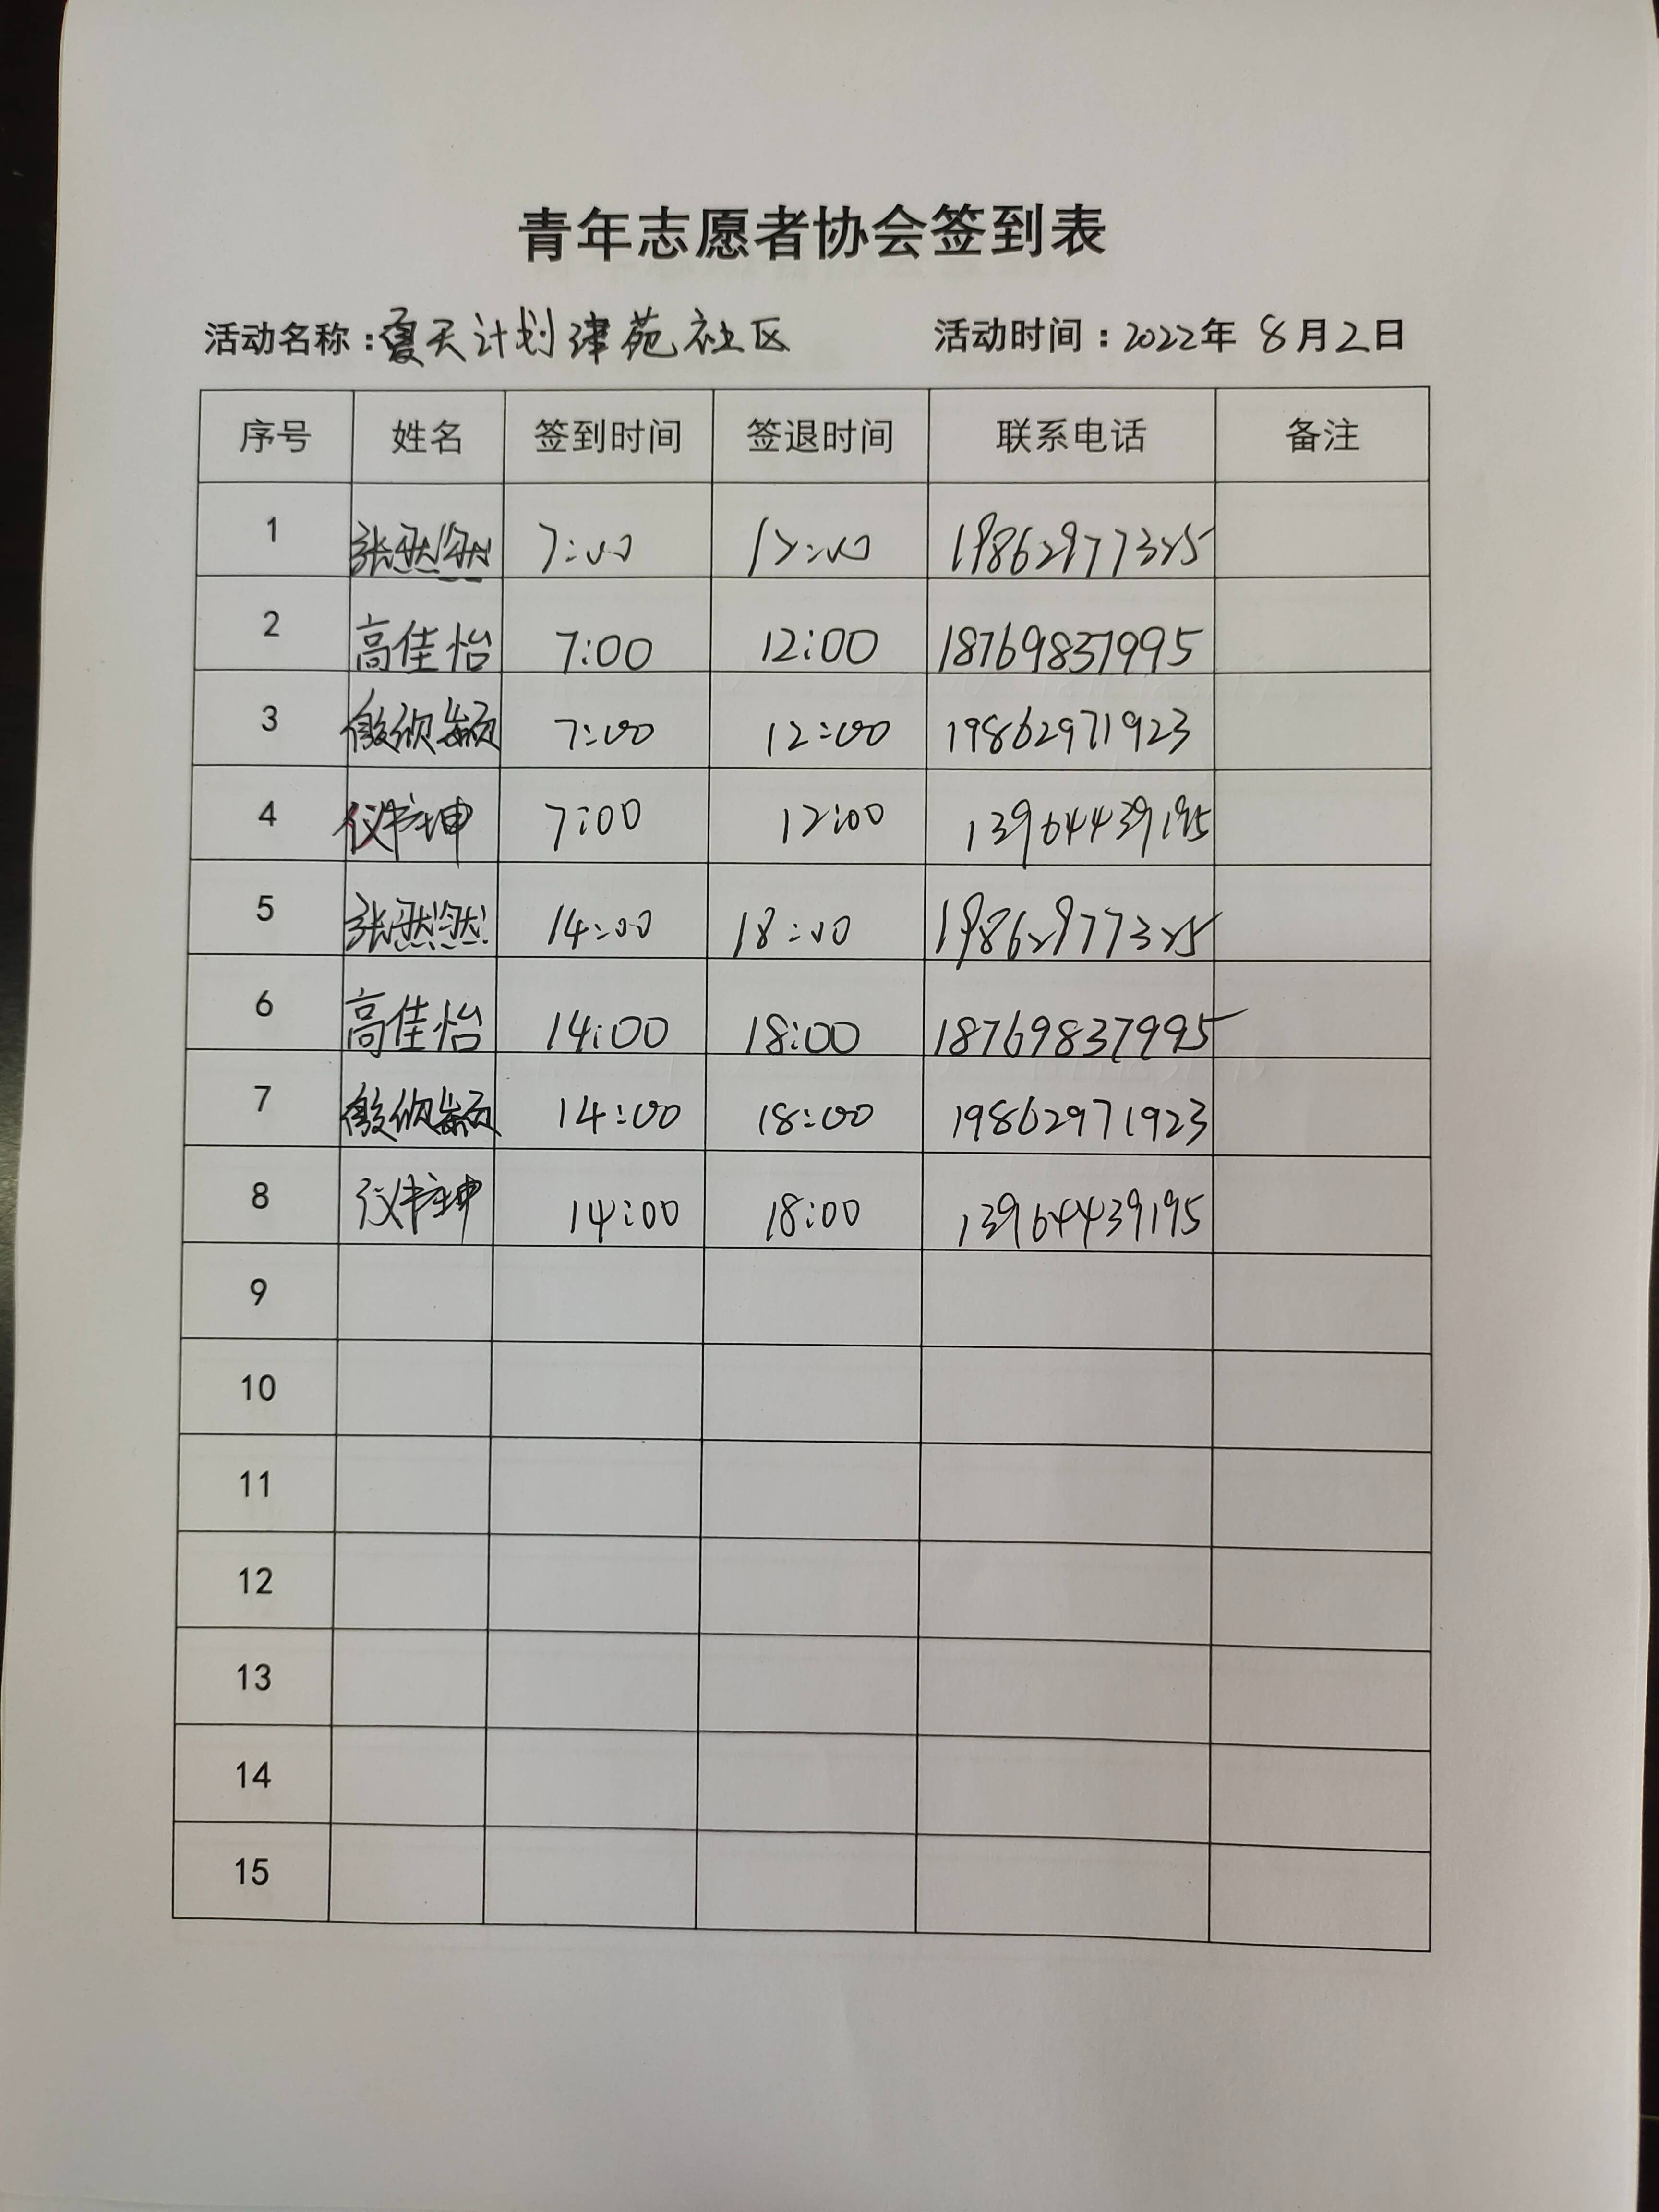 青年志愿者协会签到表
活动名称：夏天计划津苑社区 活动时间：2022年 8月2日
序号 姓名 签到时间 签退时间 联系电话 备注
1 张然然 7:00 12:00 19862977325
2 高佳怡 7:00 12:00 18769837995
3 缴欣颖 7:00 12:00 19862971923
4 仪书坤 7:00 12:00 13964439195
5 张然然 14:00 18:00 19862977325
6 高佳怡 14:00 18:00 18769837995
7 缴欣颖 14:00 18:00 19862971923
8 仪书坤 14:00 18:00 13964439195
9
10
11
12
13
14
15